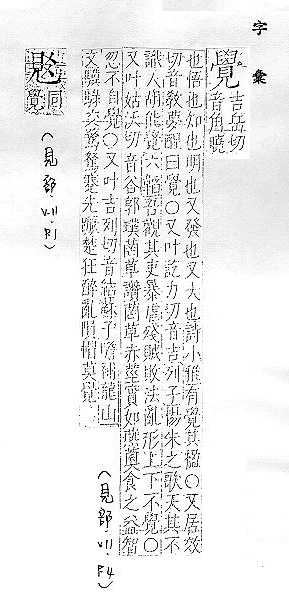 字彙
覺 吉岳切
音角曉
也悟也知也明也又發也又大也詩小雅有覺其楹○又居效
切音教夢醒曰覺○又叶訖力切音吉列子楊朱之歌天其不
識人胡能覺六韜吾觀其吏暴虐殘賊敗法亂形上下不覺○
又叶姑沃切音谷郭璞菌草讚菌草赤莖實如燕薁食之益智
忽不自覺○又叶吉列切音結蘇子瞻補龍山
文驥騄交騖駑蹇先蹶楚狂醉亂隕帽莫覺
(見部.VII.F4)
同
覺
(見部.VII.F1)